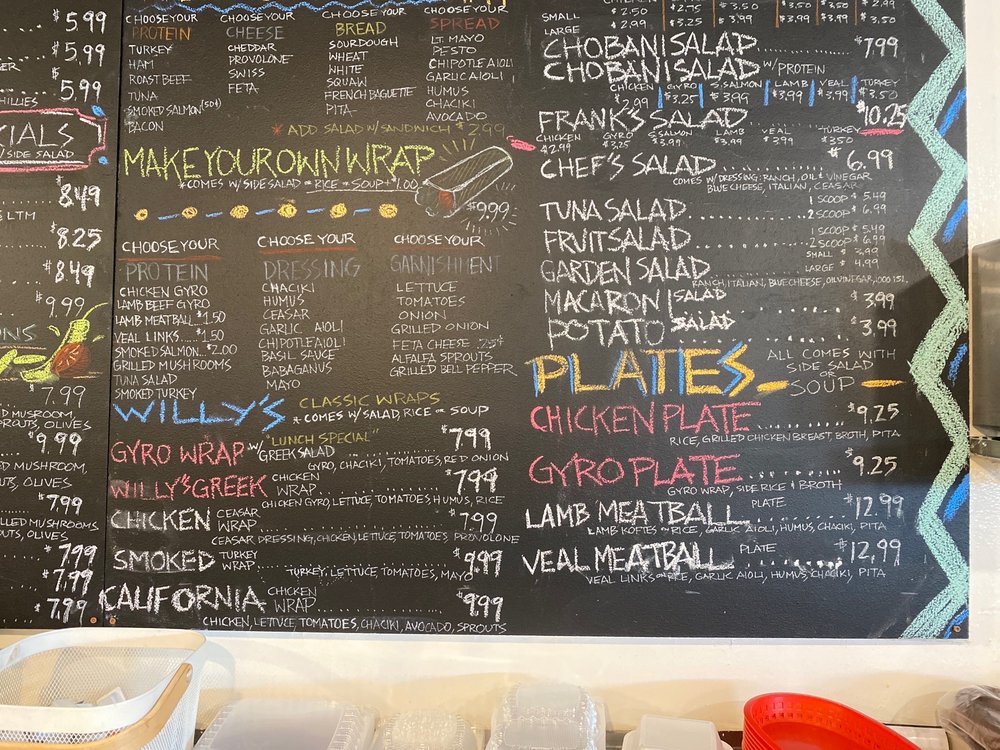 5.99
5.99
5.99
HILLIES
CIALS
/SIDE SALAD
$8.49
& LTM
$8.25
$8.49
$9.99
ONS
$7.99
MUSROOM,
SPROUTS, OLIVES
$9.99
MUSHROOM,
UTS, OLIVES
$7.99
GRILLED MUSHROOMS
ROUTS, OLIVES
$7.99
$7.99
$7.99
CHOOSE YOUR
PROTEIN
TURKEY
HAM
ROAST BEEF
TUNA
SMOKED SALMON (50¢)
BACON
CHOOSE YOUR
CHEESE
CHEDDAR
PROVOLONE
SWISS
FETA
CHOOSE YOUR
BREAD
SOURDOUGH
WHEAT
WHITE
SQUAW
FRENCH BAGUETTE
PITA
CHOOSE YOUR
SPREAD
LT. MAYO
PESTO
CHIPOTLE AIOLI
GARLIC AIOLI
HUMUS
CHACIKI
AVOCADO
* ADD SALAD W/ SANDWICH $2.99
MAKE YOUR OWN WRAP
*COMES W/ SIDE SALAD OR RICE OR SOUP +$1.00
$9.99
CHOOSE YOUR
PROTEIN
CHICKEN GYRO
LAMB BEEF GYRO
LAMB MEATBALL...$1.50
VEAL LINKS...$1.50
SMOKED SALMON...$2.00
GRILLED MUSHROOMS
TUNA SALAD
SMOKED TURKEY
CHOOSE YOUR
DRESSING
CHACIKI
HUMUS
CEASAR
GARLIC AIOLI
CHIPOTLE AIOLI
BASIL SAUCE
BABAGANUS
MAYO
CHOOSE YOUR
GARNISHMENT
LETTUCE
TOMATOES
ONION
GRILLED ONION
FETA CHEESE .25¢
ALFALFA SPROUTS
GRILLED BELL PEPPER
WILLY'S CLASSIC WRAPS
* COMES W/ SALAD, RICE OR SOUP
GYRO WRAP W/ "LUNCH SPECIAL" GREEK SALAD $7.99
GYRO, CHACIKI, TOMATOES, RED ONION
WILLY'S GREEK CHICKEN WRAP $7.99
CHICKEN GYRO, LETTUCE, TOMATOES, HUMUS, RICE
CHICKEN CEASAR WRAP $7.99
CEASAR DRESSING, CHICKEN, LETTUCE, TOMATOES PROVOLONE
SMOKED TURKEY WRAP $9.99
TURKEY, LETTUCE, TOMATOES, MAYO
CALIFORNIA CHICKEN WRAP $9.99
CHICKEN, LETTUCE, TOMATOES, CHACIKI, AVOCADO, SPROUTS
SMALL $2.50 $2.99 $3.50 $3.50 $2.99
LARGE $2.99 $3.25 $3.99 $3.99 $3.99 $3.50
CHOBANI SALAD $7.99
CHOBANI SALAD W/ PROTEIN
CHICKEN GYRO S. SALMON LAMB VEAL TURKEY
$2.99 $3.25 $3.99 $3.99 $3.99 $3.50
FRANK'S SALAD $10.25
CHICKEN GYRO S. SALMON LAMB VEAL TURKEY
$2.99 $3.25 $3.99 $3.99 $3.99 $3.50
CHEF'S SALAD $6.99
COMES W/ DRESSING: RANCH, OIL & VINEGAR
BLUE CHEESE, ITALIAN, CEASAR
TUNA SALAD 1 SCOOP $5.49
2 SCOOP $6.99
FRUIT SALAD 1 SCOOP $5.49
2 SCOOP $6.99
GARDEN SALAD SMALL $3.99
LARGE $4.99
RANCH, ITALIAN, BLUE CHEESE, OIL VINEGAR, 1000 ISL
MACARONI SALAD $3.99
POTATO SALAD $3.99
PLATES ALL COMES WITH
SIDE SALAD
OR
SOUP
CHICKEN PLATE $9.25
RICE, GRILLED CHICKEN BREAST, BROTH, PITA
GYRO PLATE $9.25
GYRO WRAP, SIDE RICE & BROTH
LAMB MEATBALL PLATE $12.99
LAMB KOFTES OR RICE, GARLIC AIOLI, HUMUS, CHACIKI, PITA
VEAL MEATBALL PLATE $12.99
VEAL LINKS OR RICE, GARLIC AIOLI, HUMUS, CHACIKI, PITA